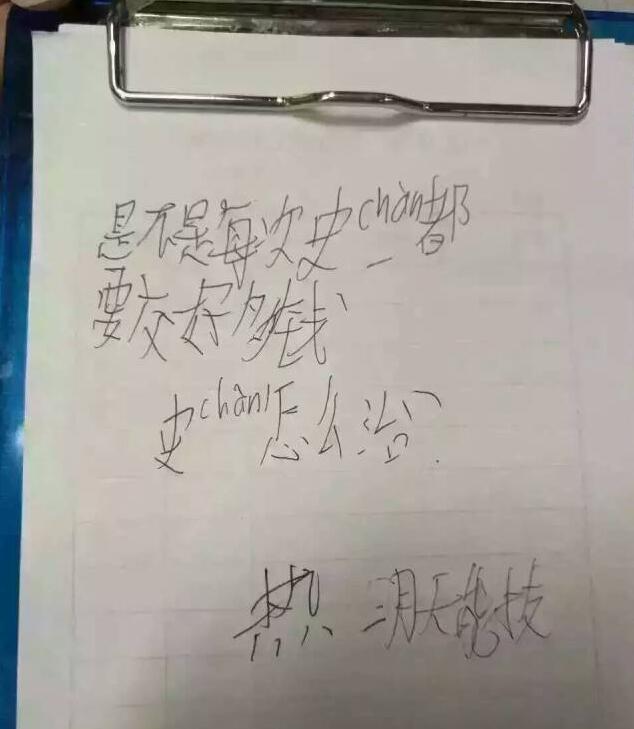 是不是每次史chàn都
要交好多钱
史chàn怎么治
热 明天能